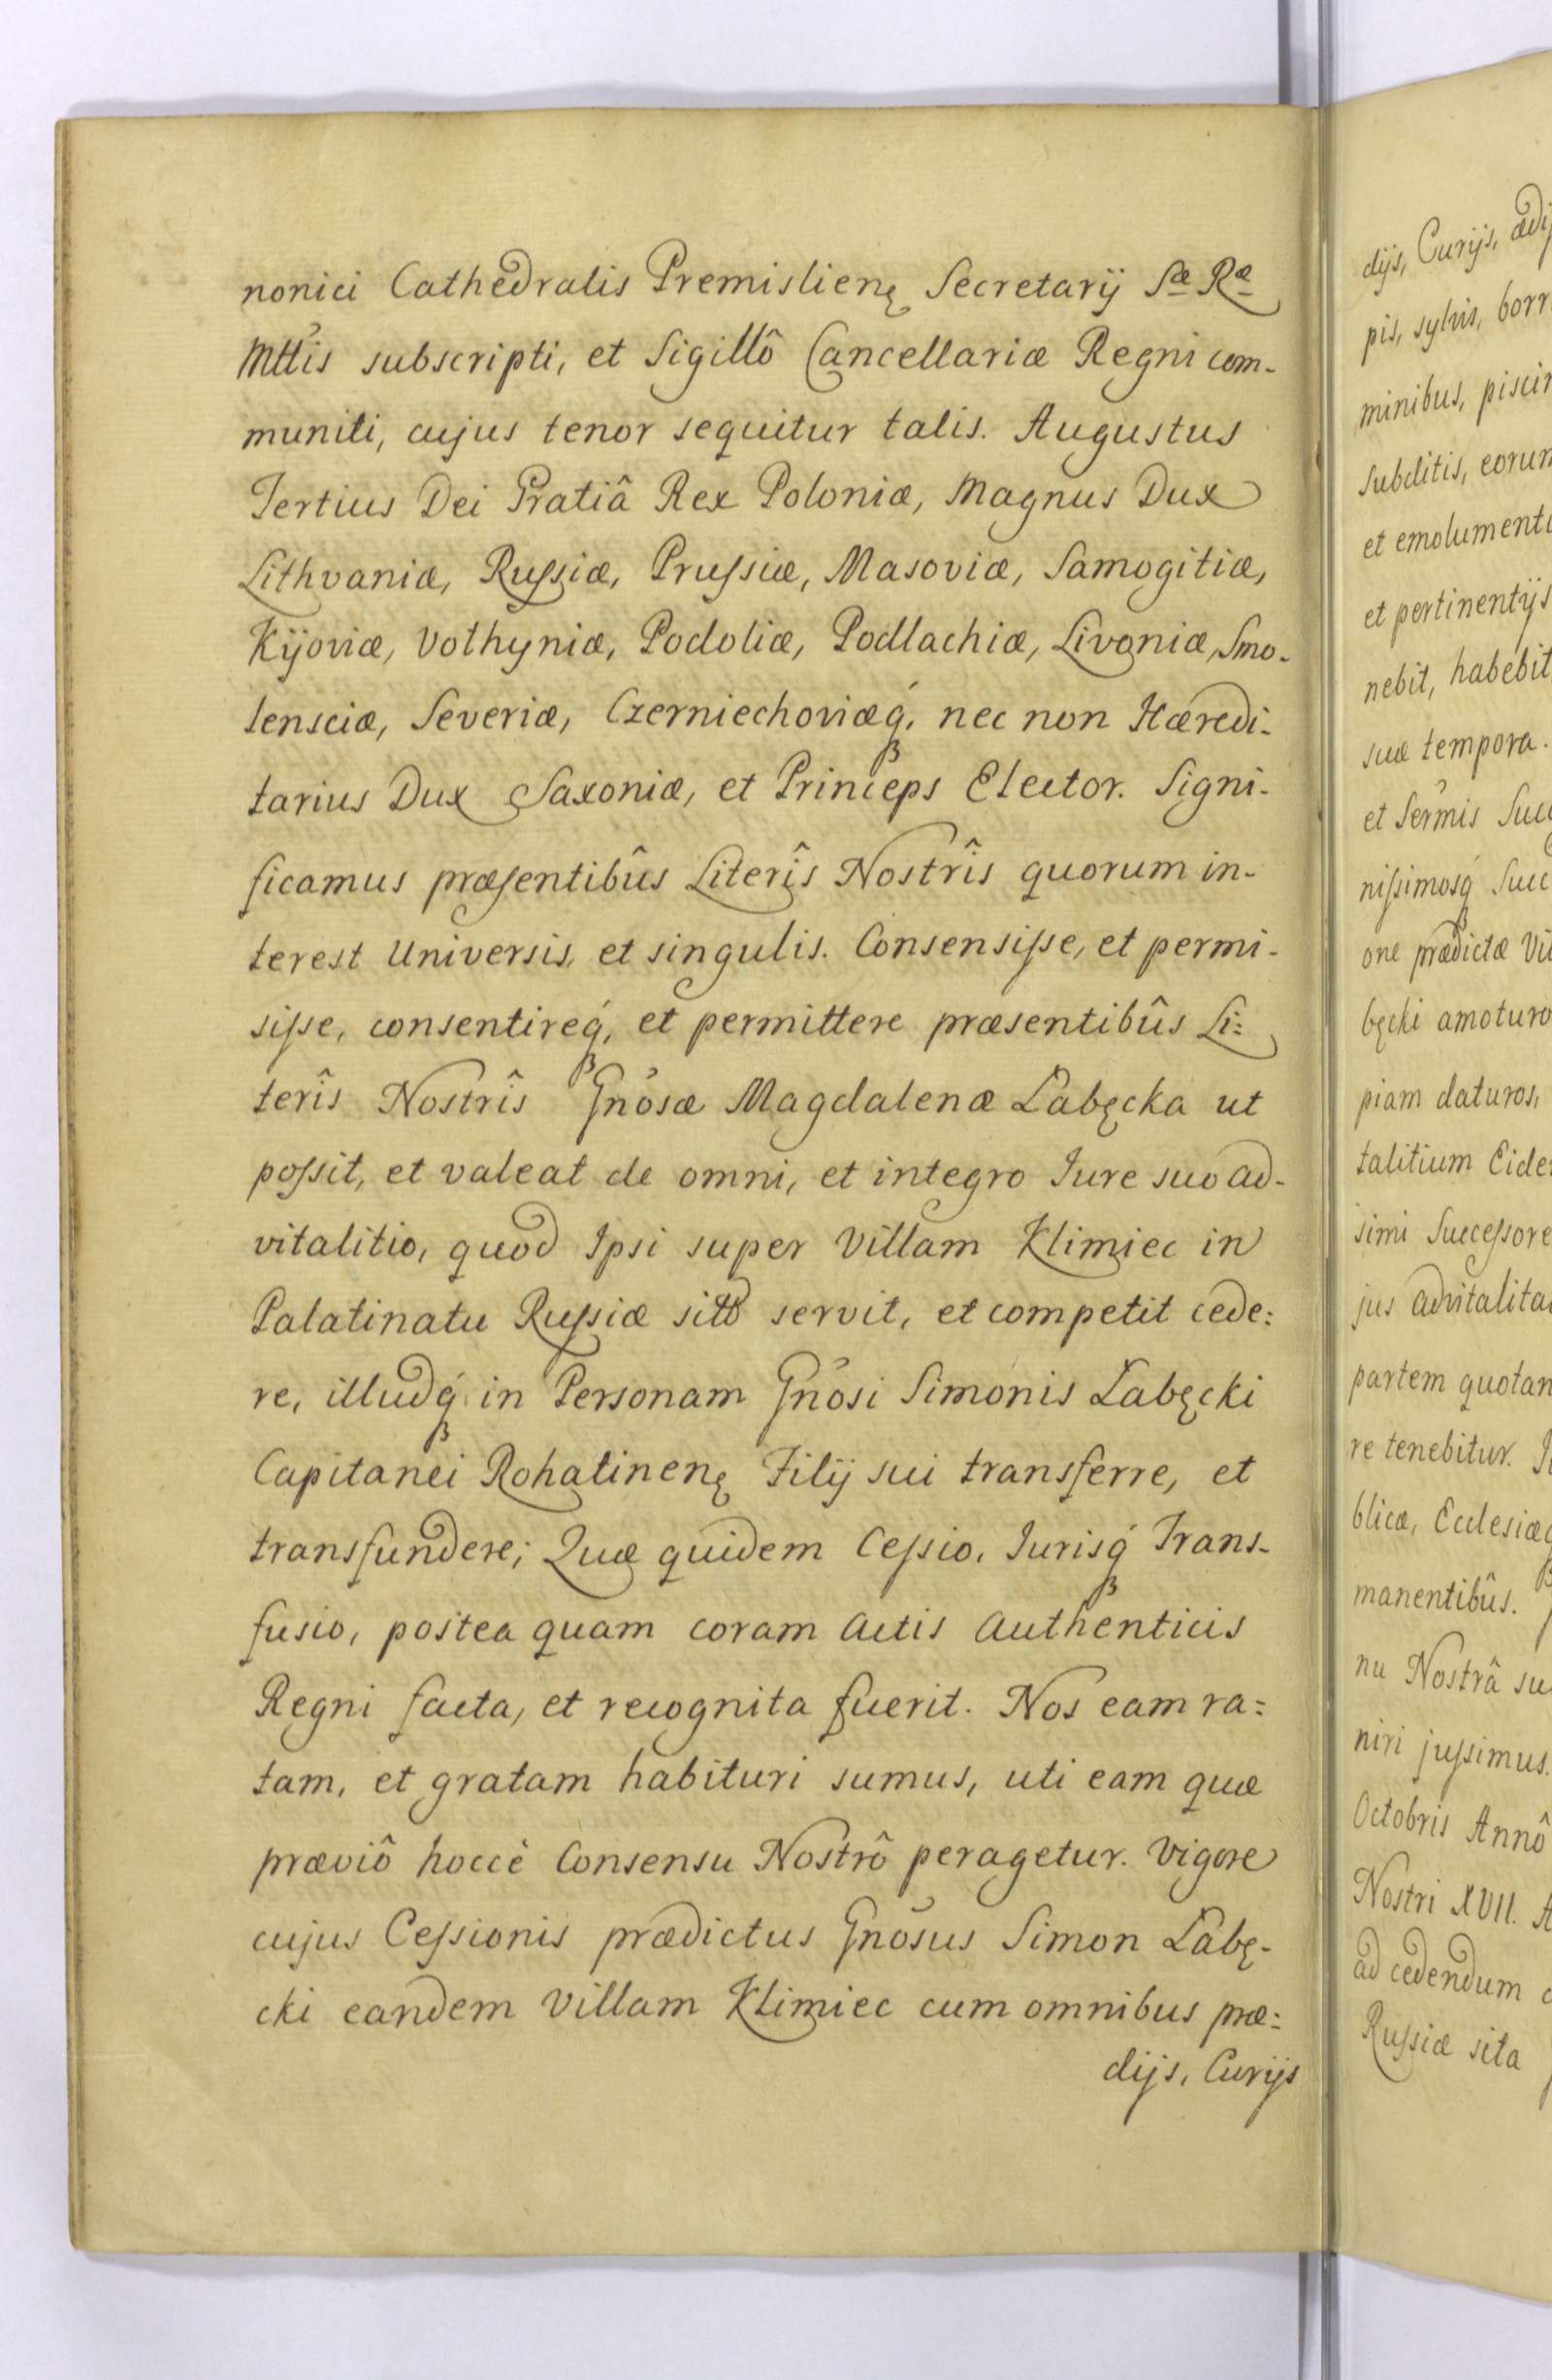 nonici Cathedralis Premislienę Secretarij Sæ Ræ
Mttis subscripti, et Sigillô Cancellariæ Regni com-
muniti, cujus tenor sequitur talis. Augustus
Tertius Dei Gratiâ Rex Poloniæ, Magnus Dux
Lithvaniæ, Russiæ, Prussiæ, Masoviæ, Samogitiæ,
Kijoviæ, Volhyniæ, Podoliæ, Podlachiæ, Livoniæ, Smo-
lensciæ, Severiæ, Czerniechoviæq́, nec non Hæredi-
tarius Dux Saxoniæ, et Princeps Elector. Signi-
ficamus præsentibûs Literîs Nostrîs quorum in-
terest Universis, et singulis. Consensisse, et permi-
sisse, consentireq́, et permittere præsentibûs Li=
terîs Nostrîs Gnosæ Magdalenæ Łabęcka ut
possit, et valeat de omni, et integro Jure suo ad-
vitalitio, quod Ipsi super Villam Klimiec in
Palatinatu Russiæ sitô servit, et competit cede=
re, illudq́ in Personam Gnosi Simonis Łabęcki
Capitanei Rohatinenę Filij sui transferre, et
transfundere; Quæ quidem Cessio, Jurisq́ Trans-
fusio, postea quam coram Actis Authenticis
Regni facta, et recognita fuerit. Nos eam ra=
tam, et gratam habituri sumus, uti eam quæ
præviô hoccè Consensu Nostrô peragetur. Vigore
cujus Cessionis prædictus Gnosus Simon Łabę-
cki eandem Villam Klimiec cum omnibus præ=
dijs, Curijs
dijs, Curijs, ædi
pis, sylvis, borr
minibus, piscin
subditis, eorum
et emolumenti
et pertinentijs
nebit, habebit
suæ tempora.
et Sermis Succ
nissimosq́ Succ
one prædictæ Vil
bęcki amoturo
piam daturos,
talitium Eide
simi Successore
jus advitalita
partem quotan
re tenebitur.
blicæ, Ecclesiæq́
manentibûs.
nu Nostrâ su
niri jussimus.
Octobris Annô
Nostri XVII. A
ad cedendum
Russiæ sita